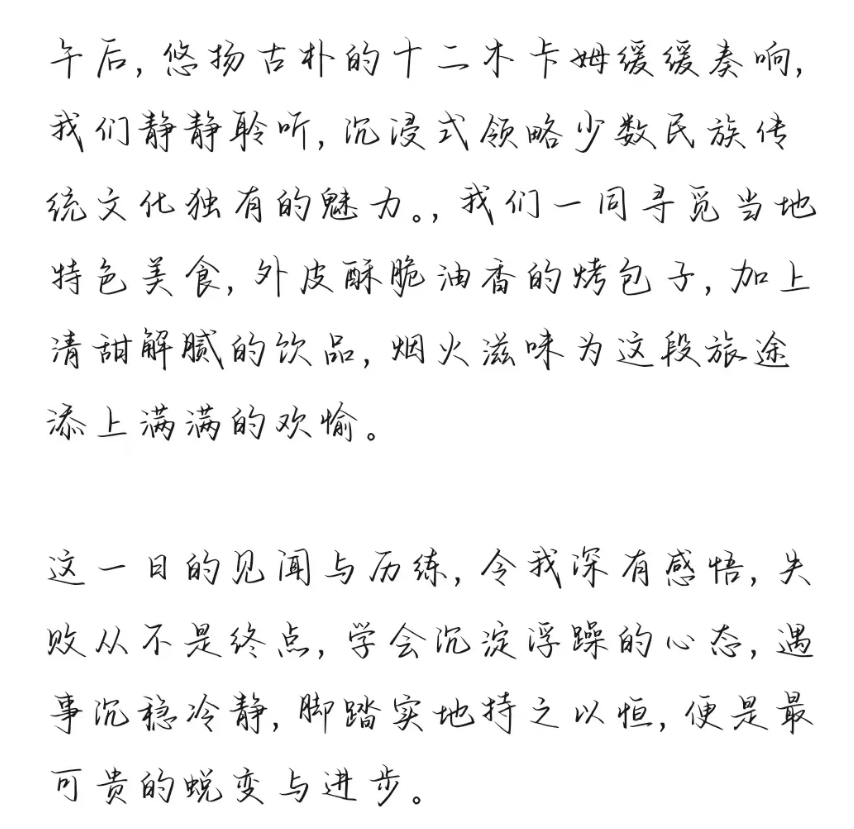 午后,悠扬古朴的十二木卡姆缓缓奏响,
我们静静聆听,沉浸式领略少数民族传
统文化独有的魅力。,我们一同寻觅当地
特色美食,外皮酥脆油香的烤包子,加上
清甜解腻的饮品,烟火滋味为这段旅途
添上满满的欢愉。
这一日的见闻与历练,令我深有感悟,失
败从不是终点,学会沉淀浮躁的心态,遇
事沉稳冷静,脚踏实地持之以恒,便是最
可贵的蜕变与进步。